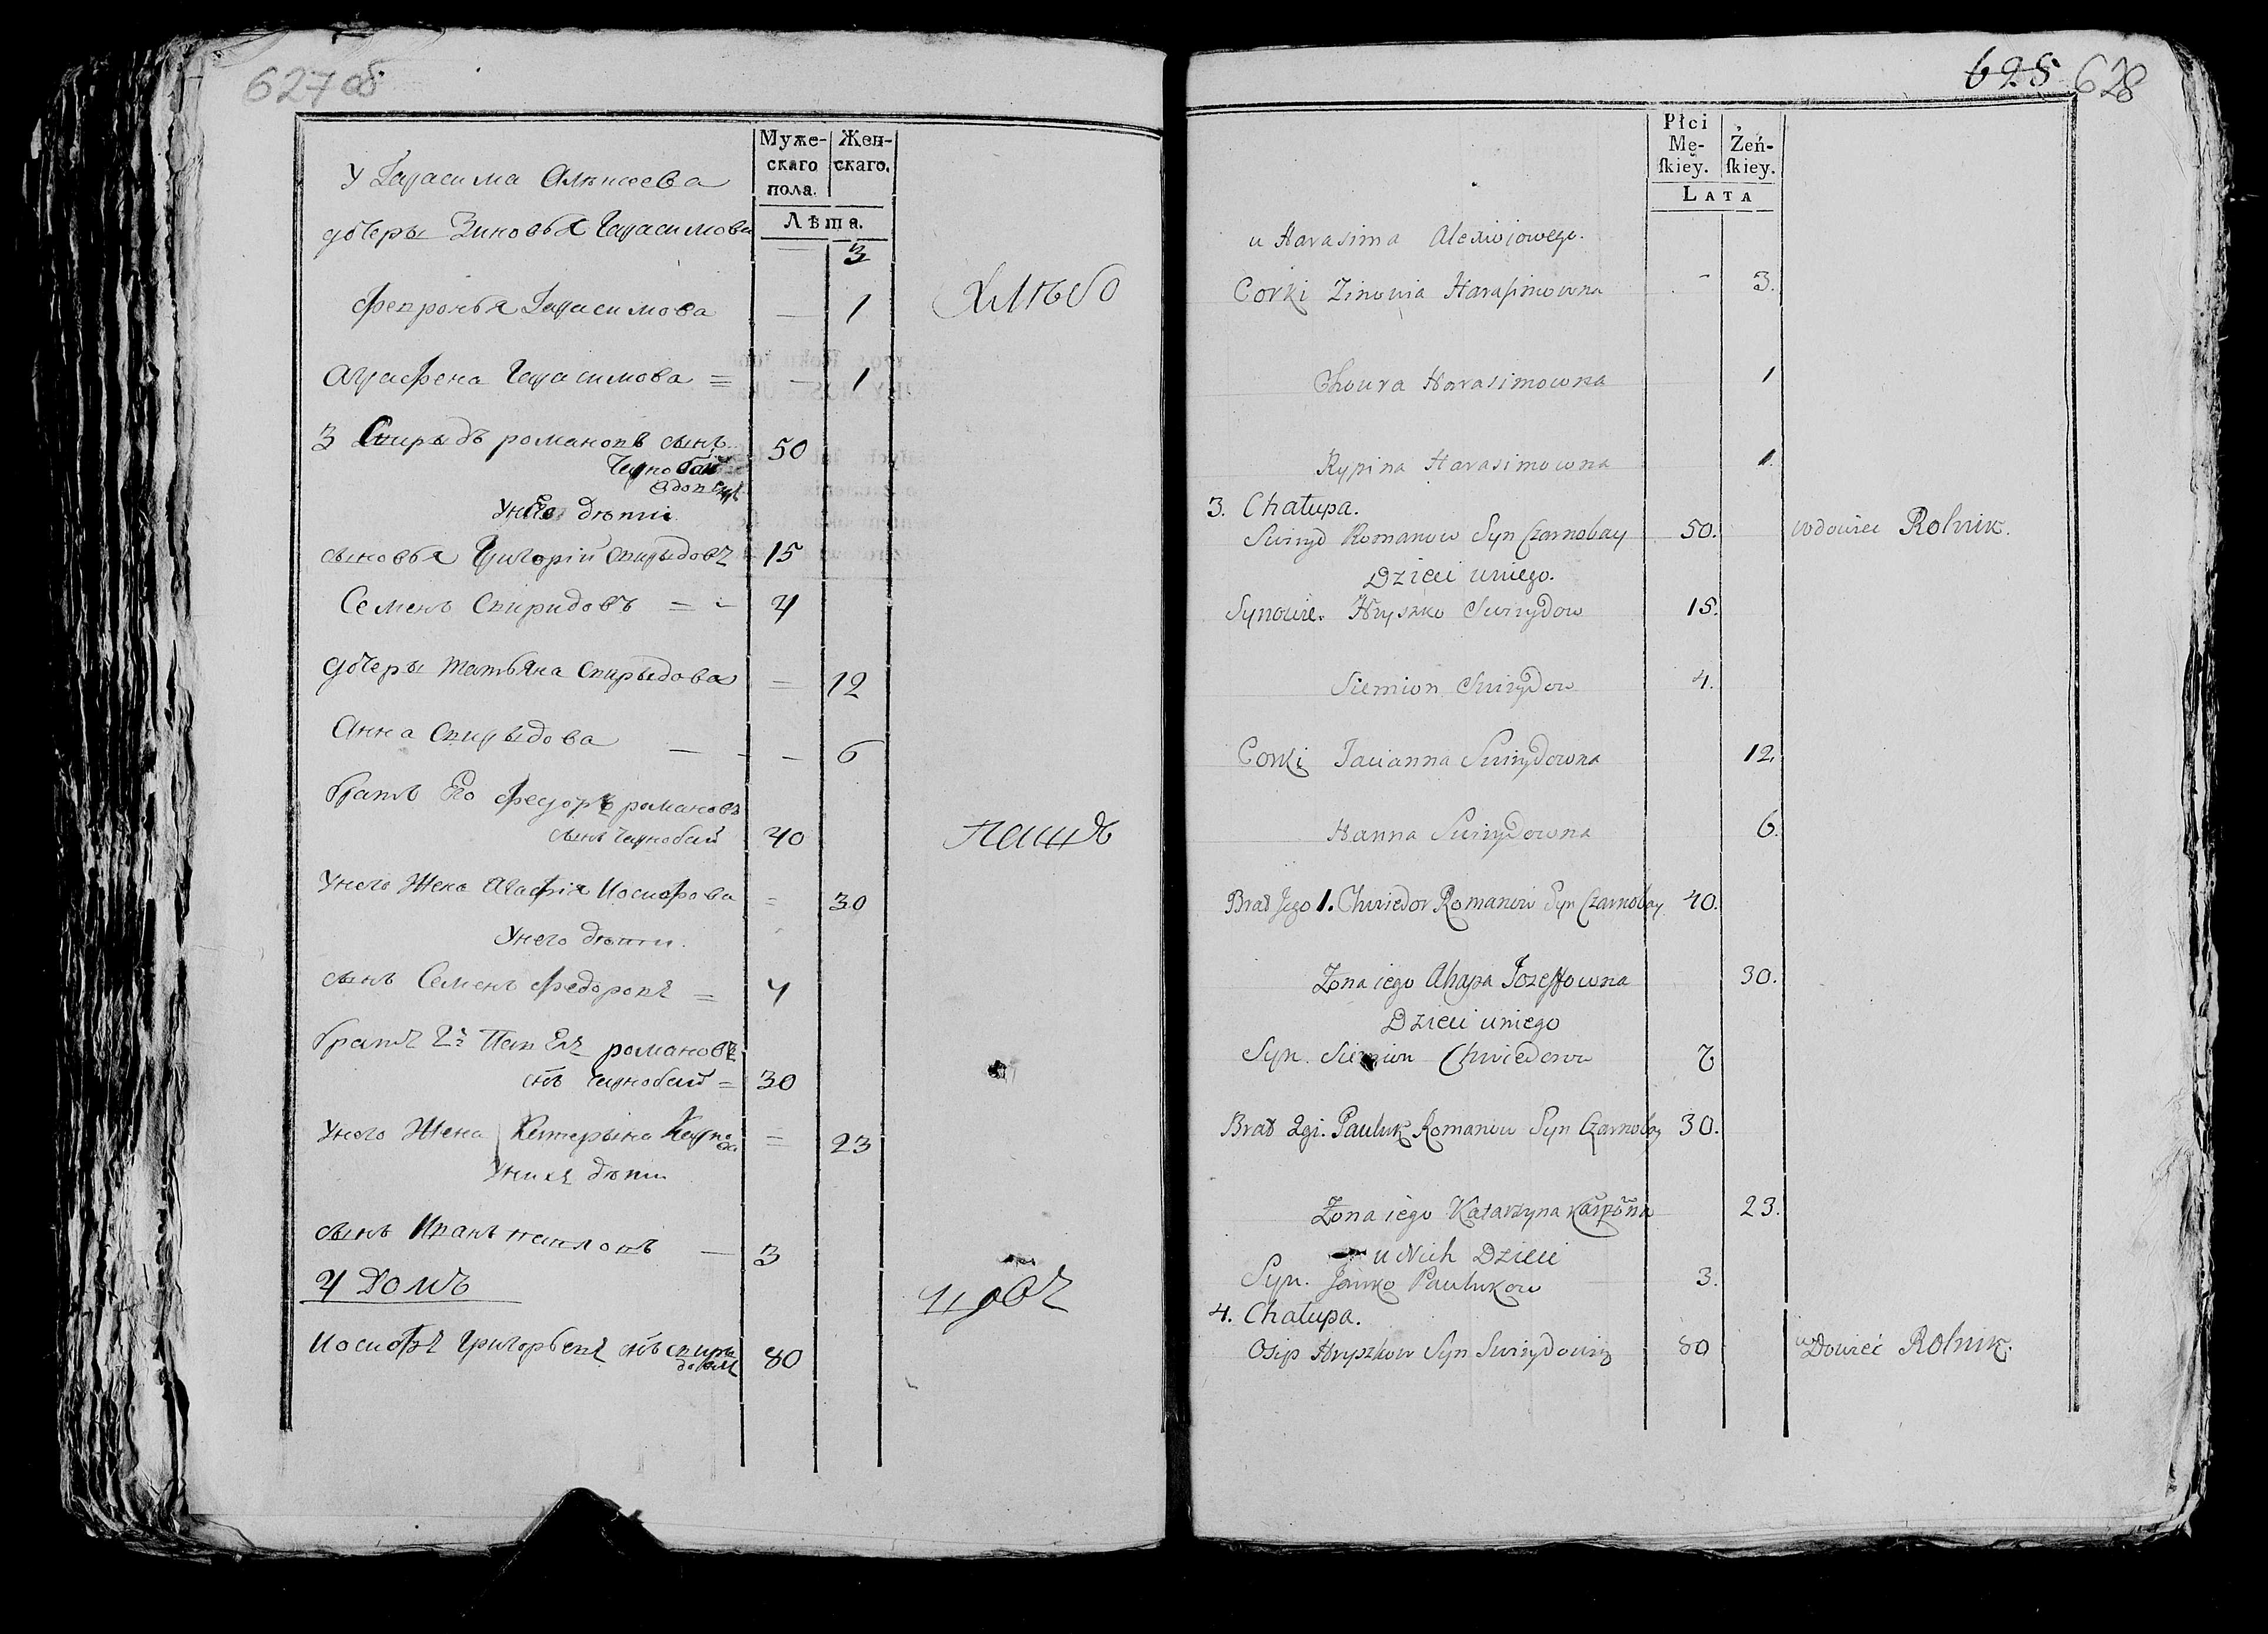 627 об
Муже-
скаго
пола.
Жен-
скаго.
Лѣта.
У Гарасима Алексеева
дочеры Зиновья Гарасимова — 3
Февронья Гарасимова — 1
Аграфена Гарасимова = — 1
хлѣбо
3 Спирыдъ романовъ сынъ 50
Чернобай
вдовецъ
У него дѣти
сыновья Григорій спирыдовъ 15
Семенъ Спиридовъ = - 4
дочеры татьяна спирыдова = 12
Анна Спирыдова — - — 6
братъ Его Федоръ романовъ
сынъ Чернобай 40
У него Жена Агафія Иосифова = 30
У него дѣти.
сынъ Семенъ Федоровъ = 4
братъ 2й Павелъ романовъ
снъ Чернобай = 30
У него Жена Катерына Карпова = 23
У них дѣти
сынъ Иванъ павловъ — 3
4 Домъ
Иосифъ Григорьевъ снъ спирыдовичъ 80
пашъ
695 628
Płci
Mę-
ſkiey.
Żeń-
ſkiey.
LATA
u Harasima Alexiejowego.
Corki Zinowia Harasimowna - 3.
Chowra Harasimowna 1
Rypina Harasimowna 1.
3. Chałupa.
Swiryd Romanow Syn Czarnobay 50. wdowiec Rolnik.
Dzieci uniego.
Synowie. Hryszko Swirydow 15.
Siemion Swirydow 4.
Corki Tacianna Swirydowna 12.
Hanna Swirydowna 6.
Brat Jego 1. Chwiedor Romanow Syn Czarnobay 40.
Żona iego Ahapa Jozeffowna 30.
Dzieci uniego
Syn. Siemion Chwiedorow
Brat 2gi. Pauluk Romanow Syn Czarnobay 30.
Żona iego Katarzyna Karpowna 23.
u Nich Dzieci
Syn. Janko Paulukow 3.
4. Chałupa.
Osip Hryszkow Syn Swirydowicz 80 wdowiec Rolnik.